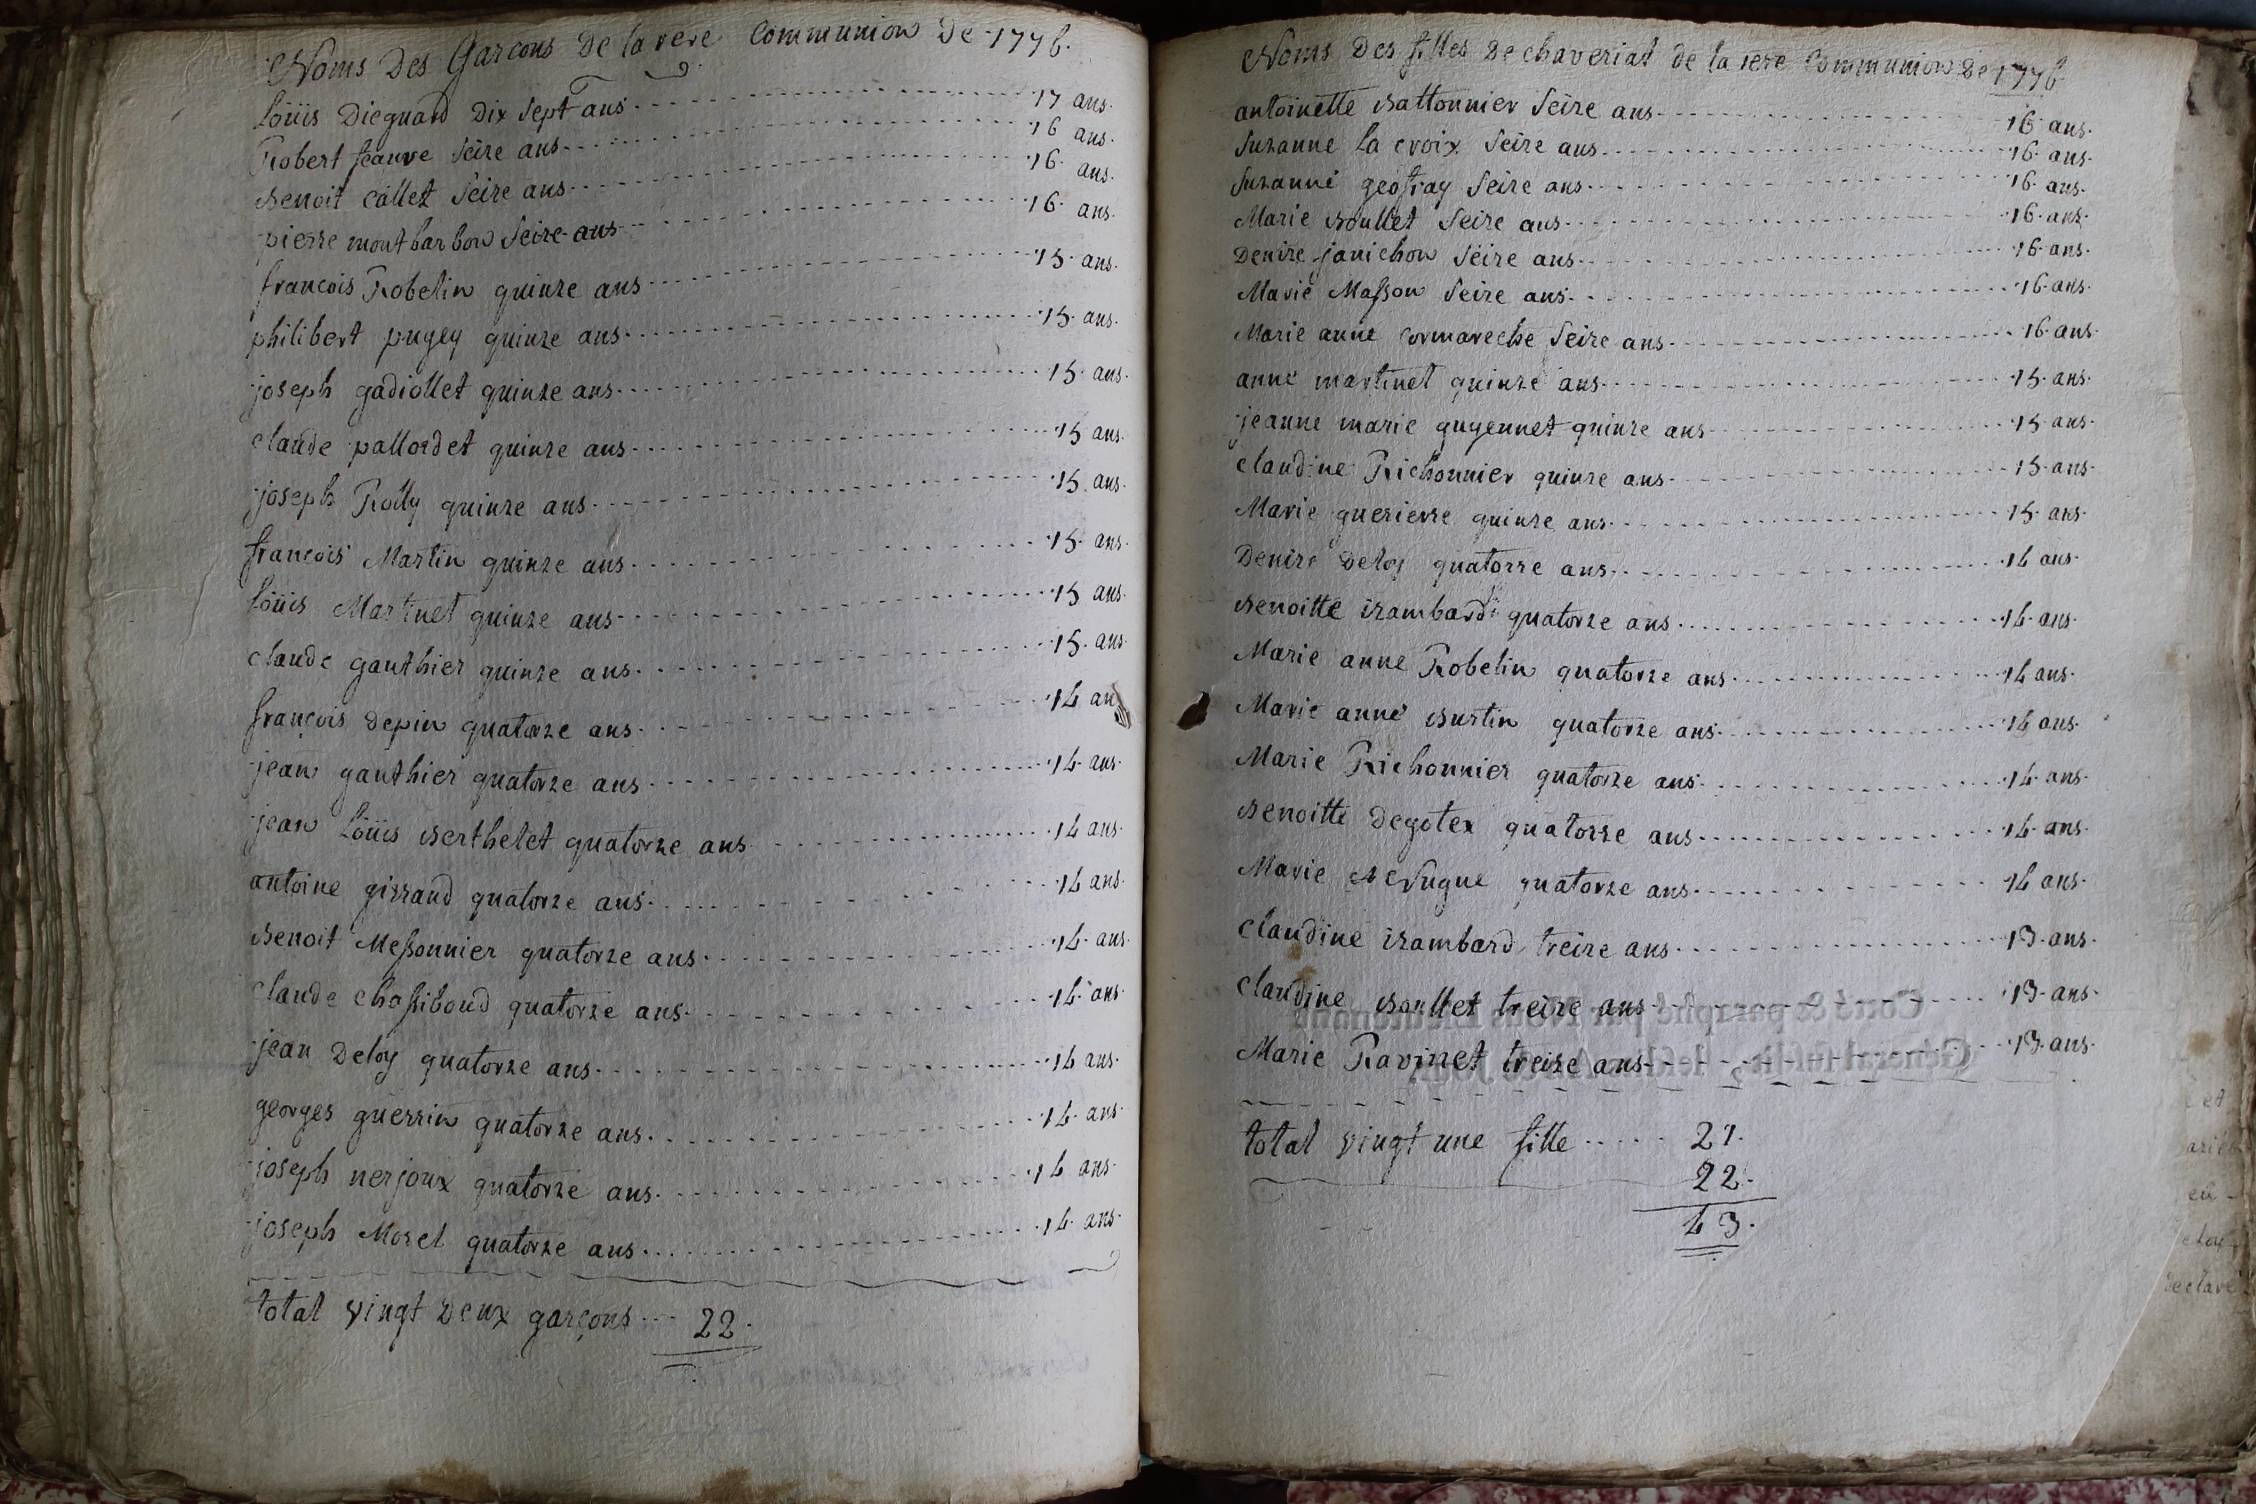 Noms Des Garcons De la rere Communion De 1776.
Loüis Dieguard Dix sept ans 17 ans.
Robert feauve seize ans 16 ans.
Benoit Callet seize ans 16 ans.
pierre montbarbon seize ans 16 ans.
francois Robelin quinze ans 15 ans.
philibert pugey quinze ans 15 ans.
joseph gadiollet quinze ans 15 ans.
claude pallordet quinze ans 15 ans.
joseph Rolly quinze ans 15 ans.
françois Martin quinze ans 15 ans.
Loüis Martinet quinze ans 15 ans.
claude gauthier quinze ans 15 ans
françois depin quatorze ans 14 an
jean gauthier quatorze ans 14 ans.
jean Loüis Berthelet quatorze ans 14 ans.
antoine girraud quatorze ans 14 ans.
Benoit Messonnier quatorze ans 14 ans.
claude chassiboud quatorze ans 14 ans.
jean Deloy quatorze ans 14 ans.
georges guerrin quatorze ans 14 ans.
joseph nerjoux quatorze ans 14 ans.
joseph Morel quatorze ans 14 ans.
total vingt Deux garçons 22.
Noms Des filles De chaveriat de la rere Communion De 1776
antoinette Battonnier seize ans 16 ans.
Suzanne la croix seize ans 16 ans.
Suzanne geofray seize ans 16 ans.
Marie Boullet seize ans 16 ans.
Denize janichon seize ans 16 ans.
Marie Masson seize ans 16 ans.
Marie anne cormareche seize ans 16 ans.
anne martinet quinze ans 15 ans.
jeanne marie guyennet quinze ans 15 ans.
claudine Richonnier quinze ans 15 ans.
Marie guerierre quinze ans 15 ans.
Denize Deloy quatorze ans 14 ans.
Benoitte izambard quatorze ans 14 ans.
Marie anne Robelin quatorze ans 14 ans.
Marie anne Burtin quatorze ans 14 ans.
Marie Richonnier quatorze ans 14 ans.
Benoitte Degotex quatorze ans 14 ans.
Marie quatorze ans 14 ans.
claudine izambard treize ans 13 ans.
claudine Boullet treize ans 13 ans.
Marie Ravinet treize ans 13 ans.
total vingt une fille 21.
22.
43.